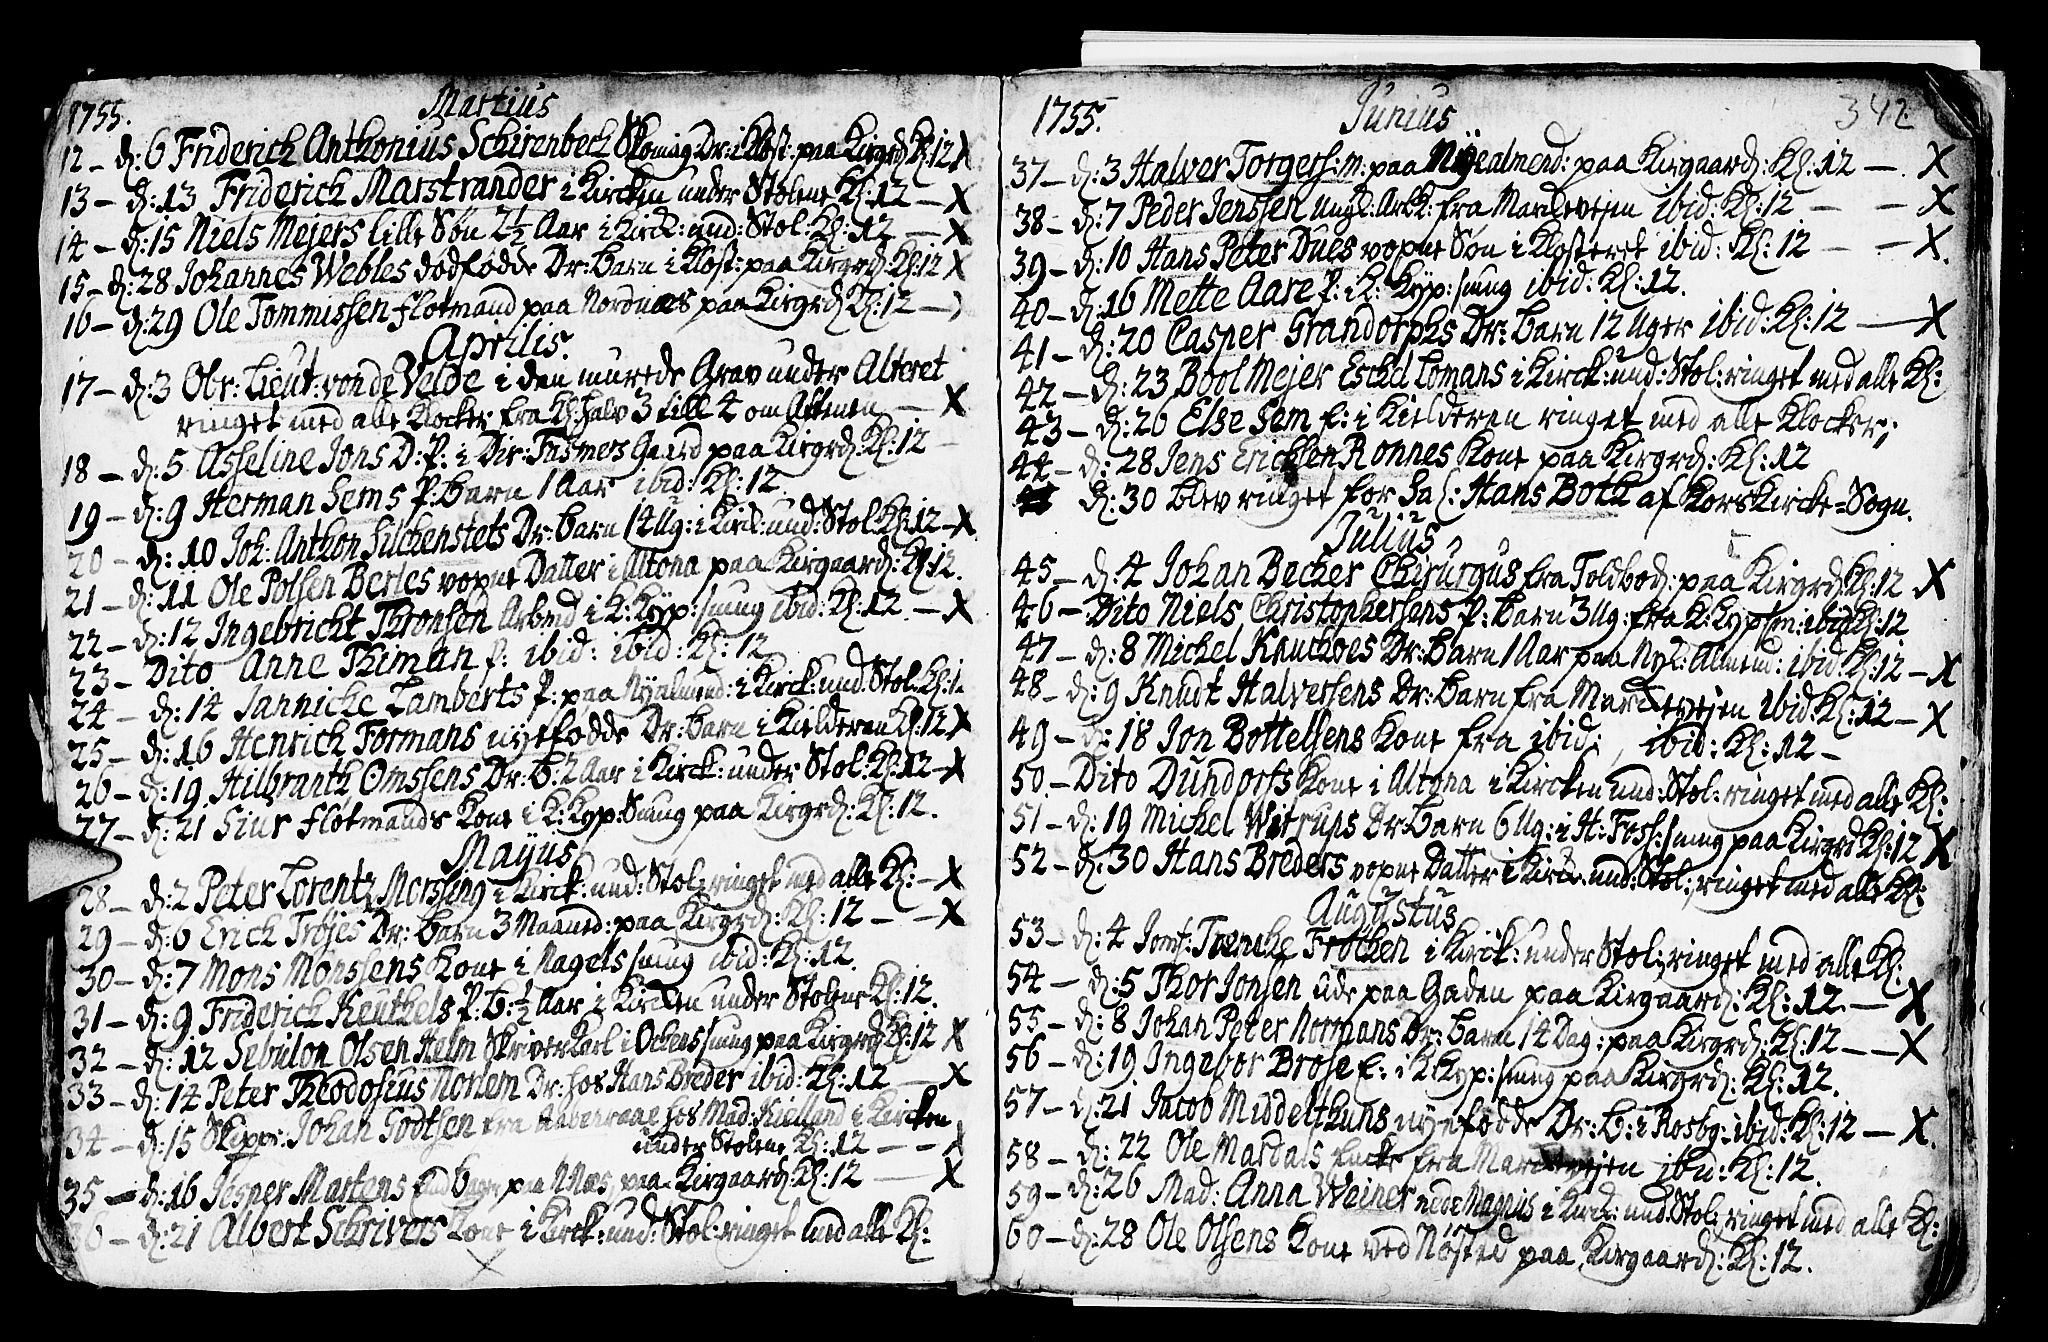 1755. Martius
12 - d: 6 Friderich Anthonius Schirenbech Skomag Dr: i Klost: paa Kirgrd Kl: 12 X
13 - d: 13 Friderich Marstrander i Kircken under Stolene Kl: 12 - X
14 - d: 15 Niels Mejers lille Søn 2½ Aar i Kirck: und: Stol: Kl: 12 - X
15 - d: 28 Johannes Webles dødfødde Dr: Barn i Klost: paa Kirgrd: Kl: 12 X
16 - d: 29 Ole Tommissen flotmand paa Nordnæs paa Kirgrd Kl: 12 -
Aprilis.
17 - d: 3 Obr: Lieut: von de Velde i den murede Grav under Alteret
ringet med alle Klocker fra Kl: halv 3 till 4 om Aftenen - X
18 - d: 5 Asseline Jons D: P: i Dir: Fasmers Gaard paa Kirgrd: Kl: 12 -
19 - d: 9 Herman Sems P: Barn 1 Aar ibid: Kl: 12
20 - d: 10 Joh: Anthon Silchenstets Dr: Barn 14 Ug: i Kirck: und: Stol: Kl: 12 - X
21 - d: 11 Ole Polsen Berles voxne Datter i Altona paa Kirgaard: Kl: 12.
22 - d: 12 Ingebricht Thronsen Arbmd i K: Kyp: smug ibid: Kl: 12. - X
23 - Dito Anne Thiman f: ibid: ibid: Kl: 12
24 - d: 14 Jannicke Lamberts P: paa Nyalmend: i Kirck: und: Stol: Kl: 1
25 - d: 16 Henrich Formans nyefødde Dr: Barn i Kielderen Kl: 12 X
26 - d: 19 Hilbranth Omssens Dr: B: 2 Aar i Kirck: under Stol: Kl: 12 - X
27 - d: 21 Siur flotmands Kone i K: Kyp: Smug paa Kirgrd: Kl: 12.
Mayus
28 - d: 2 Peter Lorentz Morsing i Kirck: und: Stol: ringet med alle Kl: - X
29 - d: 6 Erich Trojes Dr: Barn 3 Maaned: paa Kirgrd: Kl: 12 - - X
30 - d: 7 Mons Monssens Kone i Nagels smug ibid: Kl: 12.
31 - d: 9 Friderich Keuthels P: B: ½ Aar i Kircken under Stolene Kl: 12.
32 - d: 12 Sebulon Olsen Helm Skriverkarl i Ockens smug paa Kirgrd Kl: 12 X
33 - d: 14 Peter Theodosius Noriem Dr: hos Hans Breder ibid: Kl: 12 - X
34 - d: 15 Skippr: Johan Godtsen fra Aabenraae hos Mad: Kielland i Kircken
under Stolene Kl: 12 - - X
35 - d: 16 Jesper Martens paa Næs, paa Kirgaard: Kl: 12 - X
36 - d: 21 Albert Schrivers Kone i Kirck: und: Stol: ringet med alle Kl:
X
1755. Junius 342
37 - d: 3 Halver Torgers: m: paa Nÿealmend: paa Kirgaard: Kl: 12 - X
38 - d: 7 Peder Jenssen ungl: Arbk: fra Marckevejen ibid: Kl: 12 - - X
39 - d: 10 Hans Peter Dues voxne Søn i Klosteret ibid: Kl: 12 - - X.
40 - d: 16 Mette Aare P: i K: Kyp: smug ibid: Kl: 12.
41 - d: 20 Casper Grandorphs Dr: Barn 12 Uger ibid: Kl: 12 - X
42 - d: 23 Bool Mejer Eschel Lomans i Kirck: und: Stol: ringet med alle Kl:
43 - d: 26 Else Sem f: i Kielderen ringet med alle Klocker;
44 - d: 28 Jens Ericksen Ronnes Kone paa Kirgrd: Kl: 12
d: 30 blev ringet for Sal: Hans Both af Korskircke-Sogn.
Julius
45 - d: 4 Johan Becker Chirurgus fra Toldbod: paa Kirgrd: Kl: 12 X
46 - Dito Niels Christophersens P: Barn 3 Ug: fra K: Kyp sm: ibid Kl: 12
47 - d: 8 Michel Knuchoes Dr: Barn 1 Aar paa Nye: Almend: ibid: Kl: 12 - X
48 - d: 9 Knudt Halversens Dr: Barn fra Marckevejen ibid: Kl: 12 - X
49 - d: 18 Jon Bottelsens Kone fra ibid: ibid: Kl: 12 -
50. - Dito Dundorfs Kone i Altona i Kircken und: Stol: ringet med alle Kl:
51 - d: 19 Michel Witrups Dr Barn 6 Ug: i H: Foss: smug paa Kirgrd Kl: 12 X
52 - d: 30 Hans Breders voxne Datter i Kirck: und: Stol: ringet med alle Kl:
Augustus
53 - d: 4 Jomf: Frocken i Kirck: under Stol: ringet med alle Kl:
54 - d: 5 Thor Jonsen ude paa Gaden paa Kirgaard: Kl: 12 - X
55 - d: 8 Johan Peter Normans Dr: Barn 14 Dag: paa Kirgrd: Kl: 12 - - X
56 - d: 19 Ingebor Brose f: i K: Kyp: smug paa Kirgrd: Kl: 12.
57 - d: 21 Jacob Middelthuns nyefødde Dr: B: i Rosbg: ibid: Kl: 12 - X.
58 - d: 22 Ole Mardals Encke fra Marckevejen ibid: Kl: 12.
59 - d: 26 Mad: Anna Weiner nede Magnus i Kirck: und: Stol: ringet med alle Kl:
60 - d: 28 Ole Olsens Kone ved Nøsted paa Kirgaard: Kl: 12.